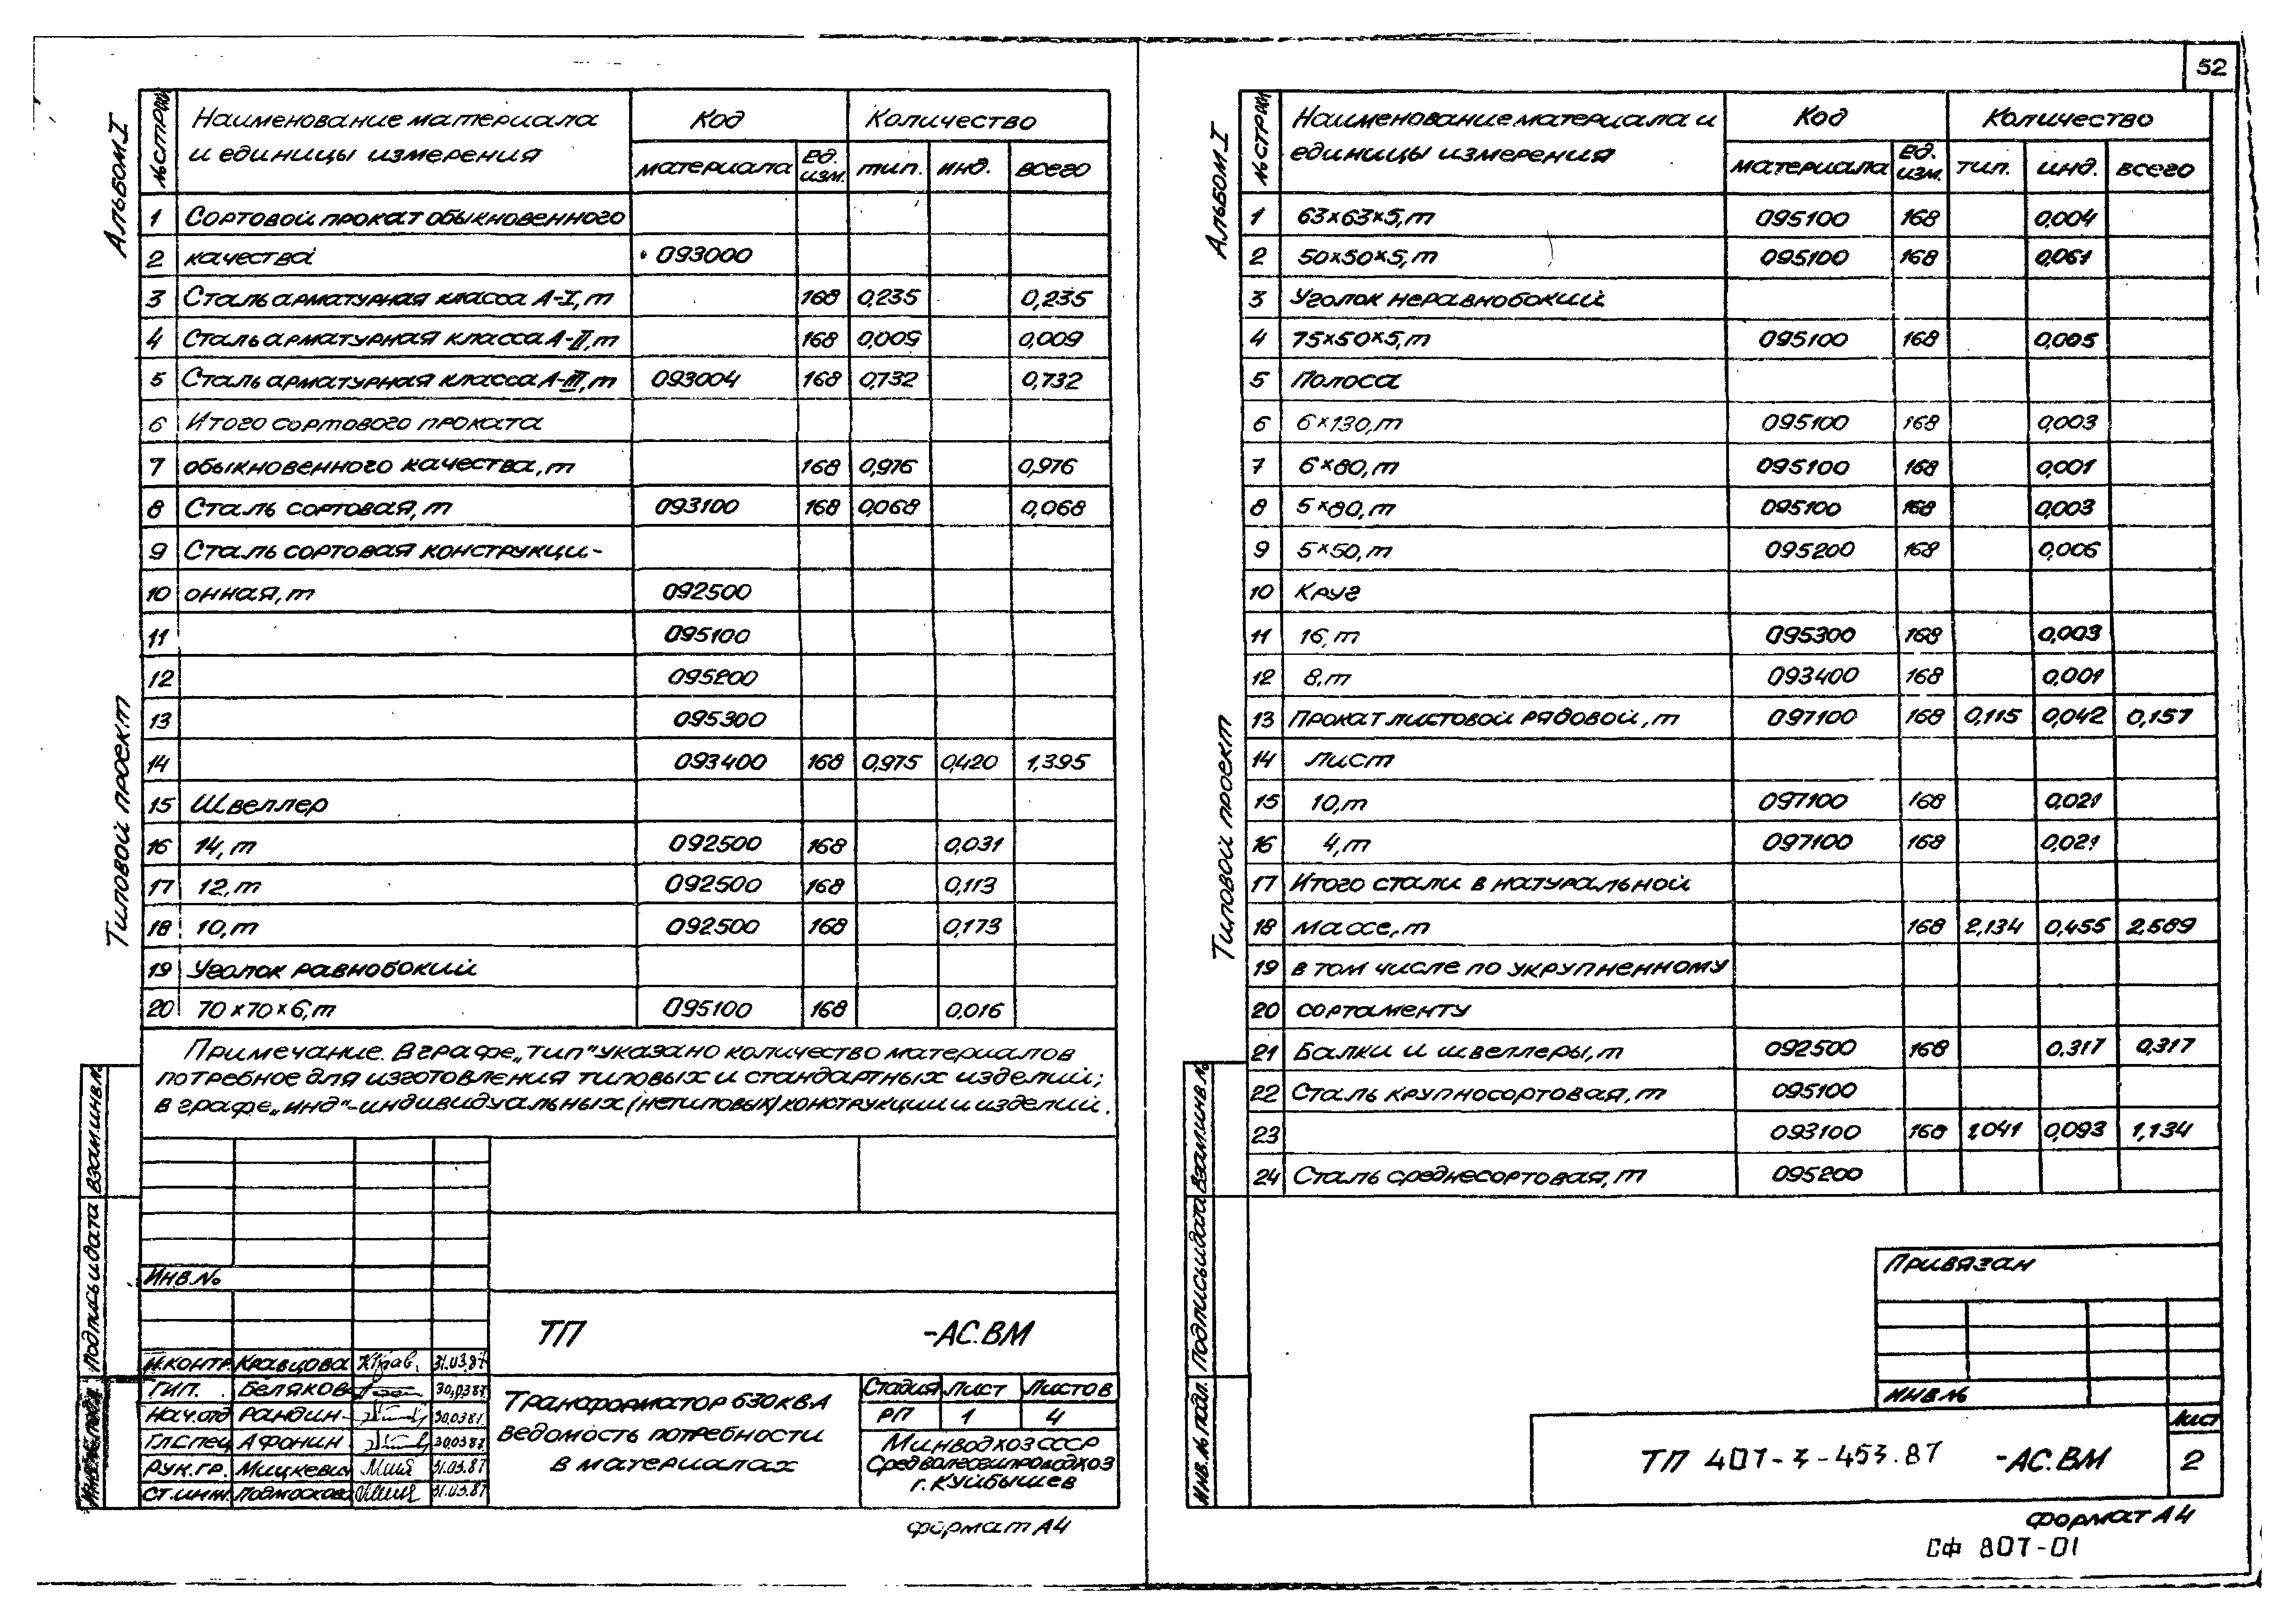 52
Альбом I
Типовой проект
№ строки Наименование материала и единицы измерения Код Количество
материала Ед. изм. тип. инд. всего
1 Сортовой прокат обыкновенного
2 качества 093000
3 Сталь арматурная класса А-I, т 168 0,235 0,235
4 Сталь арматурная класса А-II, т 168 0,009 0,009
5 Сталь арматурная класса А-III, т 093004 168 0,732 0,732
6 Итого сортового проката
7 обыкновенного качества, т 168 0,976 0,976
8 Сталь сортовая, т 093100 168 0,068 0,068
9 Сталь сортовая конструкци-
10 онная, т 092500
11 095100
12 095200
13 095300
14 093400 168 0,975 0,420 1,395
15 Швеллер
16 14, т 092500 168 0,031
17 12, т 092500 168 0,113
18 10, т 092500 168 0,173
19 Уголок равнобокий
20 70×70×6, т 095100 168 0,016
Примечание. В графе „тип" указано количество материалов
потребное для изготовления типовых и стандартных изделий;
в графе „инд"-индивидуальных (нетиповых) конструкции и изделий.
Взам.инв.№
Подпись и дата
Инв.№ подл.
Инв.№
ТП -АС.ВМ
Н.контр. Кравцова Крав. 31.03.87
ГИП. Беляков 30.03.87
Нач.отд Рандин 30.03.87
Гл.спец. Афонин 30.03.87
Рук.гр. Мицкевич 31.03.87
Ст.инж. Подмоскова 31.03.87
Трансформатор 630кВ.А
Ведомость потребности
в материалах
Стадия Лист Листов
РП 1 4
Минводхоз СССР
Средволгогипроводхоз
г. Куйбышев
Формат А4
Альбом I
Типовой проект
№ строки Наименование материала и единицы измерения Код Количество
материала Ед. изм. тип. инд. всего
1 63×63×5, т 095100 168 0,004
2 50×50×5, т 095100 168 0,061
3 Уголок неравнобокий
4 75×50×5, т 095100 168 0,005
5 Полоса
6 6×130, т 095100 168 0,003
7 6×80, т 095100 168 0,001
8 5×80, т 095100 168 0,003
9 5×50, т 095200 168 0,006
10 Круг
11 16, т 095300 168 0,003
12 8, т 093400 168 0,001
13 Прокат листовой рядовой, т 097100 168 0,115 0,042 0,157
14 Лист
15 10, т 097100 168 0,021
16 4, т 097100 168 0,021
17 Итого стали в натуральной
18 массе, т 168 2,134 0,455 2.589
19 в том числе по укрупненному
20 сортаменту
21 Балки и швеллеры, т 092500 168 0.317 0,317
22 Сталь крупносортовая, т 095100
23 093100 168 1,041 0,093 1,134
24 Сталь среднесортовая, т 095200
Взам.инв.№
Подпись и дата
Инв.№ подл.
Привязан
Инв.№
ТП 407-3-453.87 -АС.ВМ
Лист
2
Формат А4
СФ 807-01